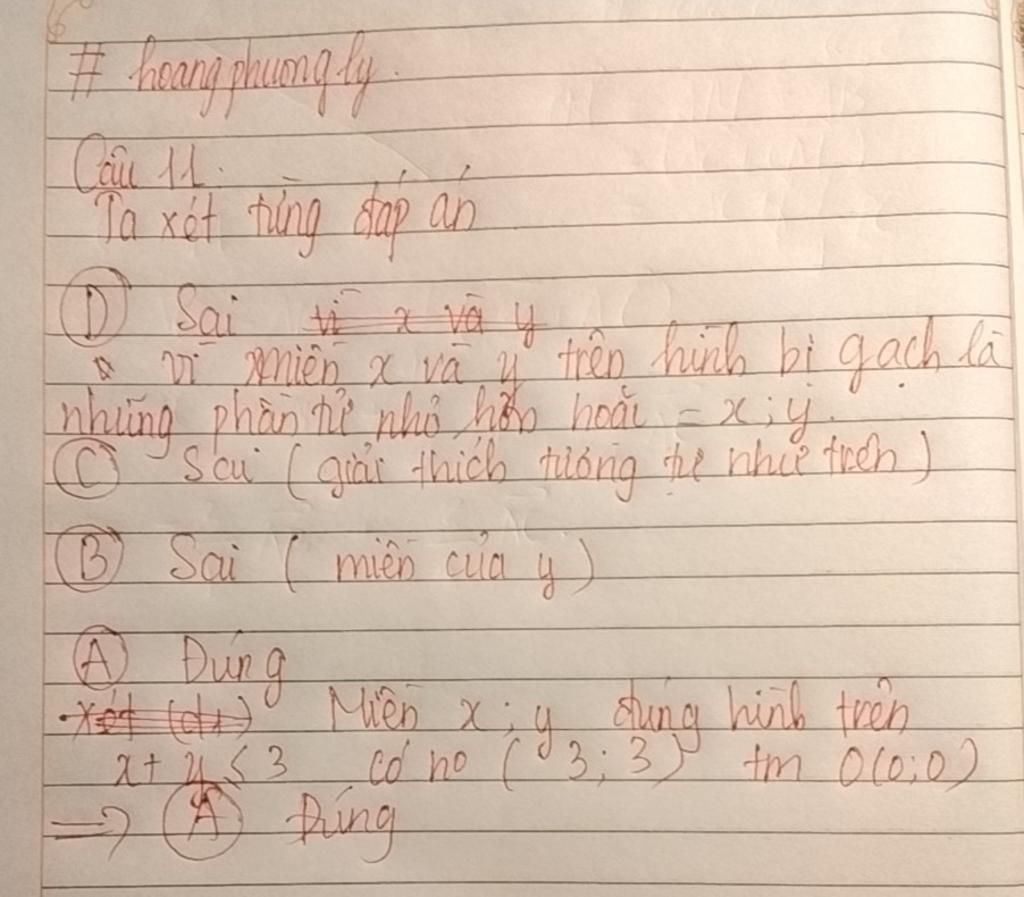 # hoangphuongly.
Câu 11.
Ta xét từng đáp án
D Sai vì x và y
vì miền x và y trên hình bị gạch là
những phần tử nhỏ hơn hoặc = x; y.
C Sai (giải thích tương tự như trên)
B Sai ( miền của y )
A Đúng
Xét (d1) Miền x; y đúng hình trên
x + y ≤ 3 có no ( 3; 3) tm O(0;0)
=> A Đúng